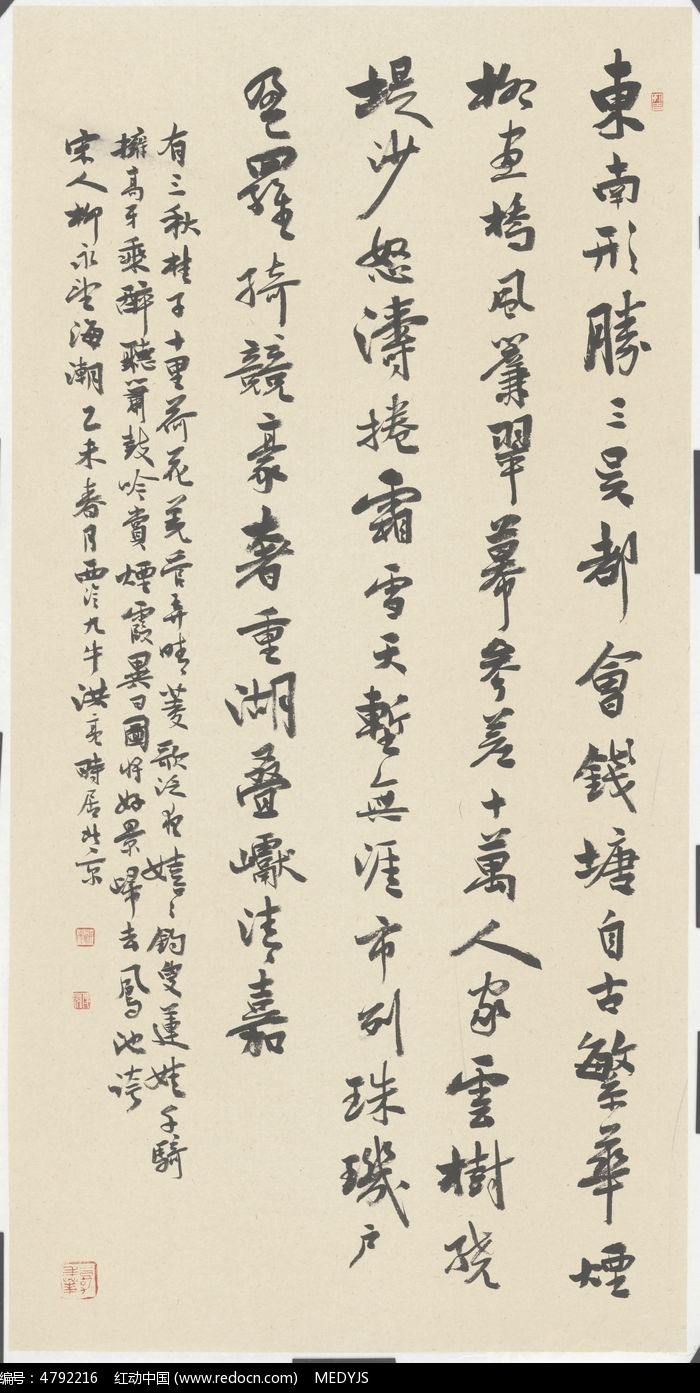 東南形勝三吴都會錢塘自古繁華煙
柳畫橋風簾翠幕參差十萬人家雲樹繞
堤沙怒濤捲霜雪天塹無涯市列珠璣户
盈羅綺競豪奢重湖疊巘清嘉
有三秋桂子十里荷花羌管弄晴菱歌泛夜嬉嬉釣叟蓮娃千騎
擁高牙乘醉聽簫鼓吟賞煙霞異日圖將好景歸去鳳池誇
宋人柳永望海潮乙未春月西泠九牛洪亮時居北京
编号：4792216 红动中国 (www.redocn.com) MEDYJS